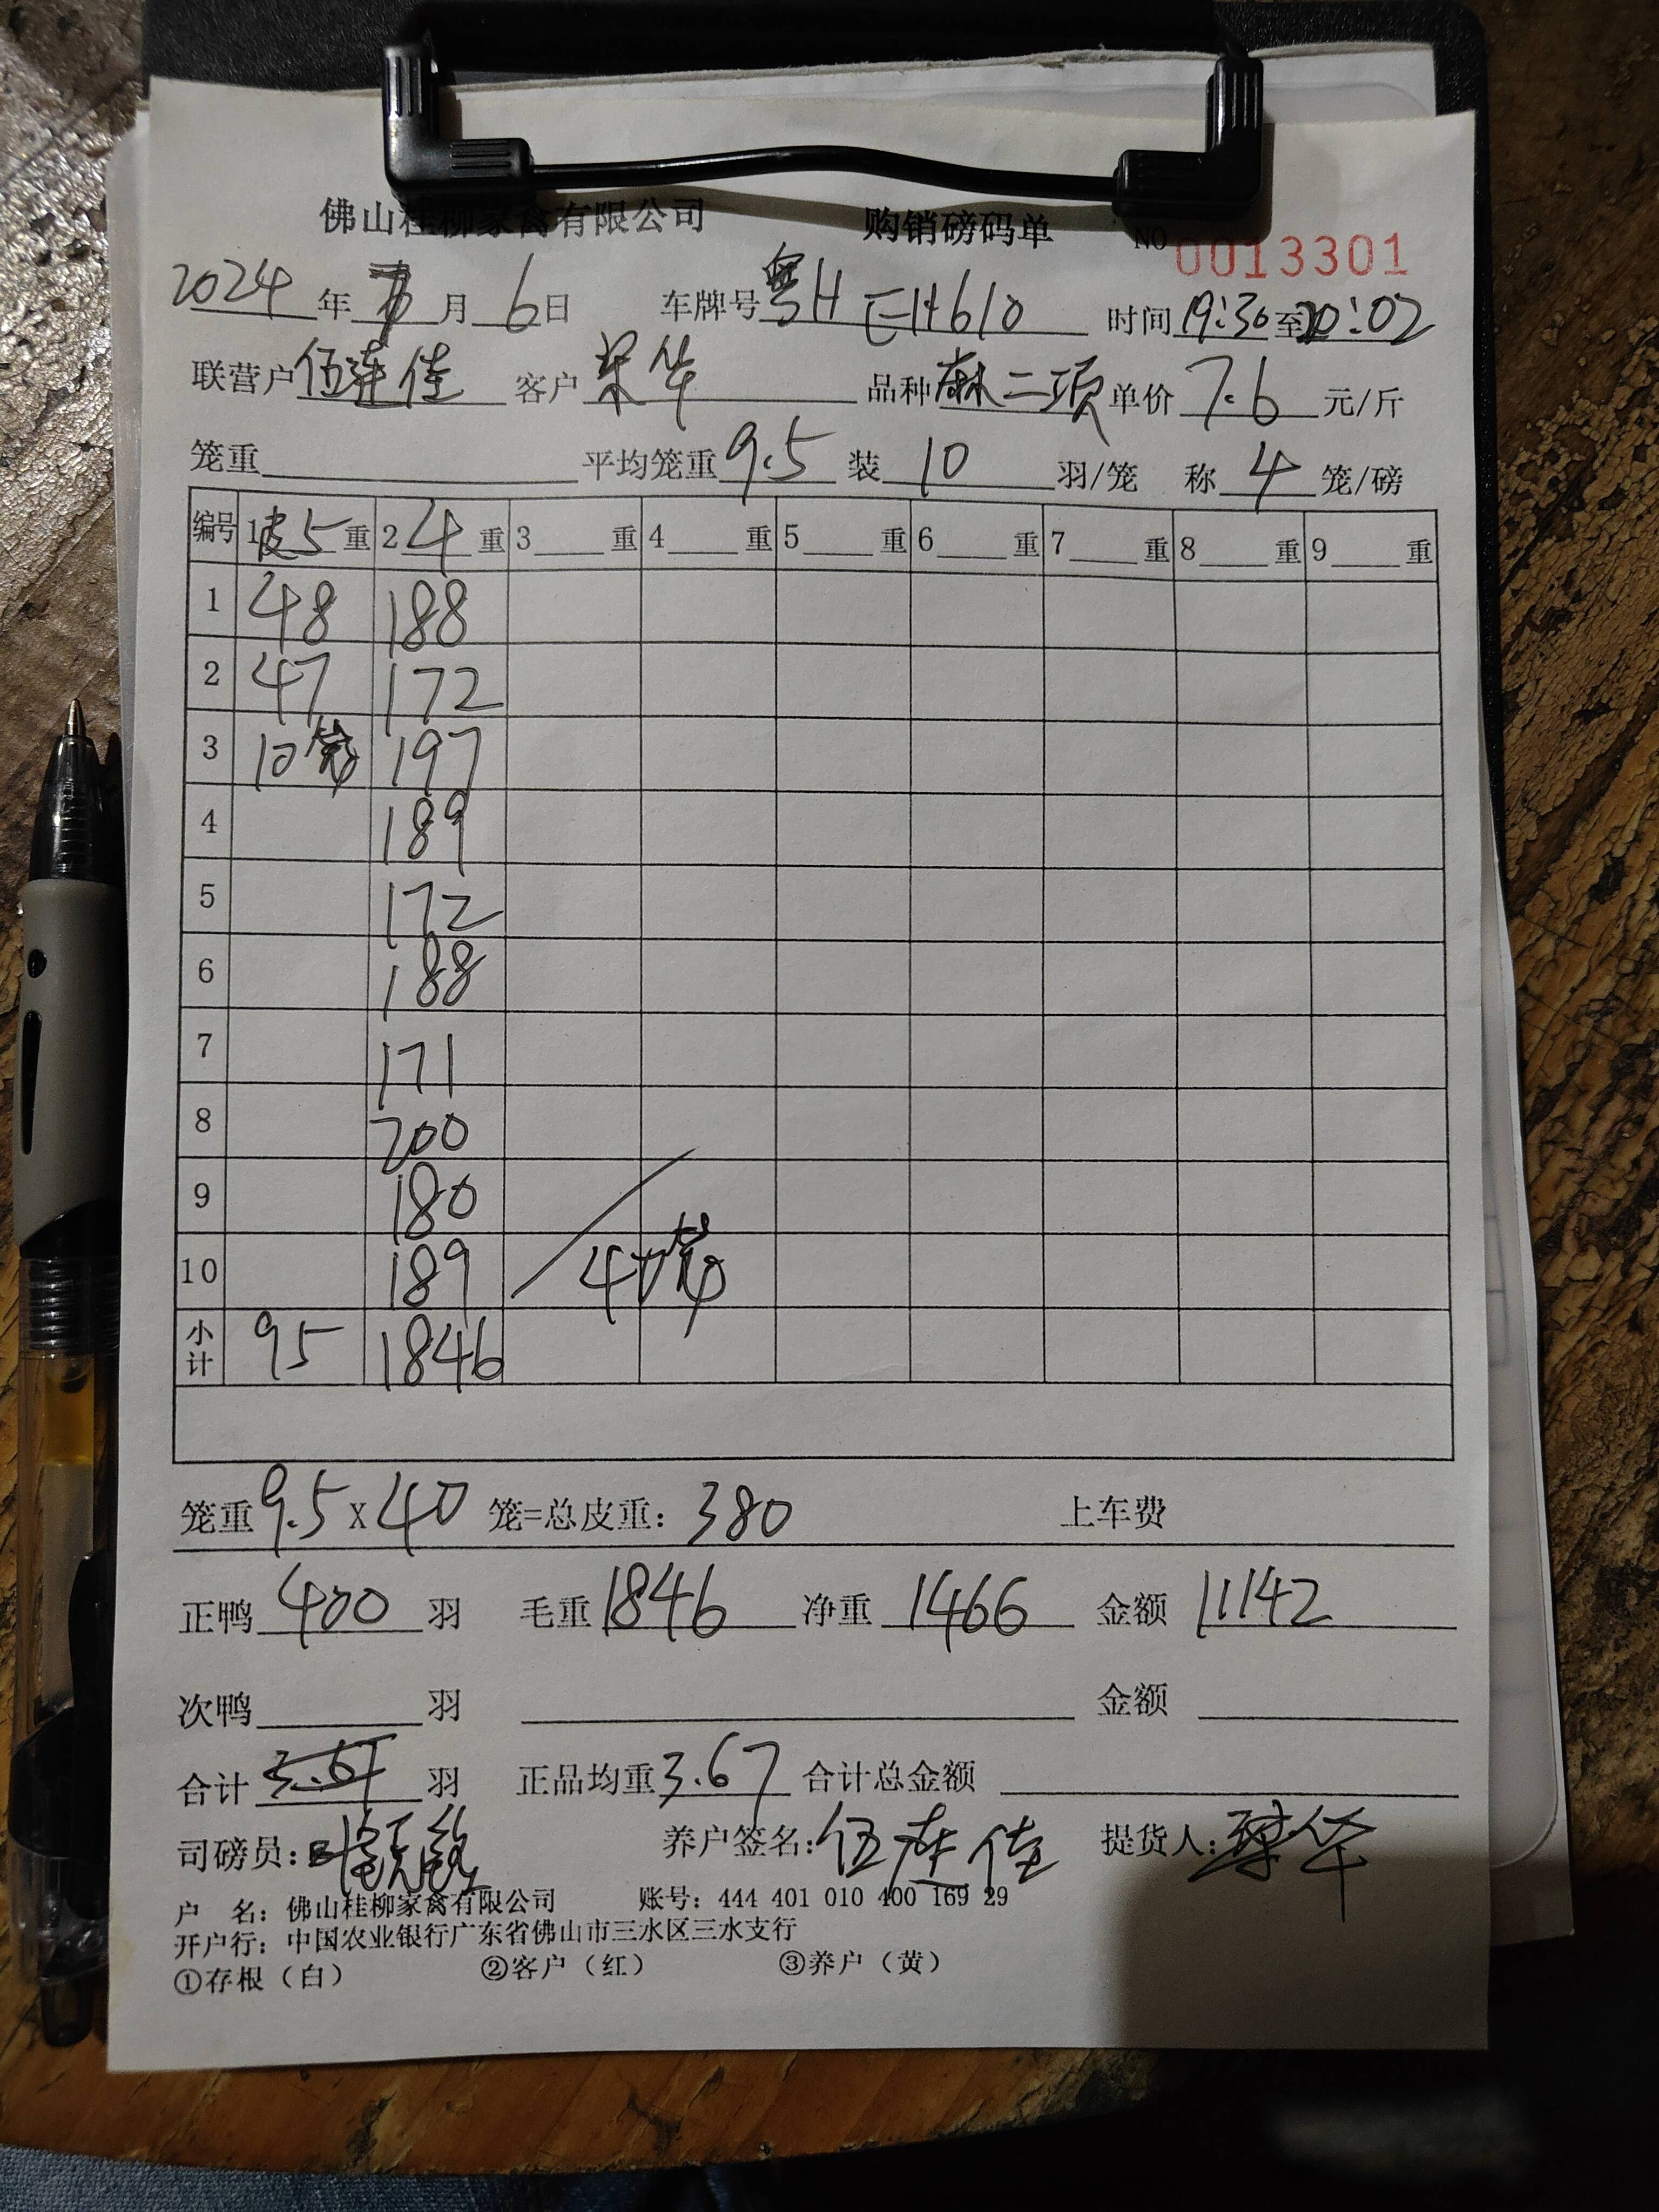 佛山桂柳家禽有限公司 购销磅码单 NO 0013301
2024 年 月 6 日 车牌号 粤H EH610 时间 19:30 至 20:02
联营户 伍连佳 客户 荣华 品种 麻二项 单价 7.6 元/斤
笼重 平均笼重 9.5 装 10 羽/笼 称 4 笼/磅
编号 1 皮5 重 2 4 重 3 重 4 重 5 重 6 重 7 重 8 重 9 重
1 48 188
2 47 172
3 10笼 197
4 189
5 172
6 188
7 171
8 200
9 180
10 189 40笼
小计 95 1846
笼重 9.5 X 40 笼=总皮重: 380 上车费
正鸭 400 羽 毛重 1846 净重 1466 金额 11142
次鸭 羽 金额
合计 羽 正品均重 3.67 合计总金额
司磅员: 养户签名: 伍连佳 提货人:
户 名: 佛山桂柳家禽有限公司 账号: 444 401 010 400 169 29
开户行: 中国农业银行广东省佛山市三水区三水支行
①存根（白） ②客户（红） ③养户（黄）